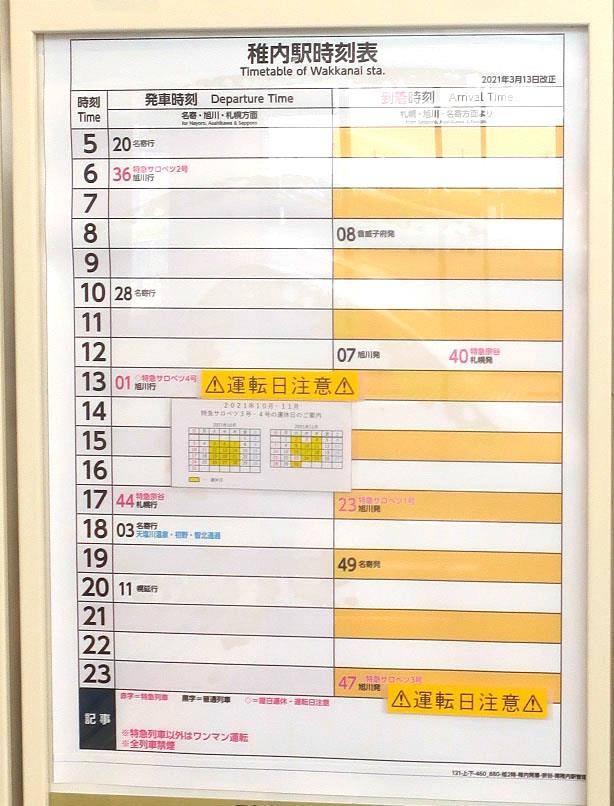 稚内駅時刻表
Timetable of Wakkanai sta.
2021年3月13日改正
時刻
Time
発車時刻 Departure Time
名寄・旭川・札幌方面
for Nayoro, Asahikawa & Sapporo
到着時刻 Arrival Time
札幌・旭川・名寄方面より
from Sapporo, Asahikawa & Nayoro
5 20 名寄行
6 36 特急サロベツ2号
旭川行
7
8 08 音威子府発
9
10 28 名寄行
11
12 07 旭川発 40 特急宗谷
札幌発
13 01 ◇特急サロベツ4号
旭川行
⚠運転日注意⚠
2021年10月・11月
特急サロベツ3号・4号の運休日のご案内
2021年10月 2021年11月
14
15
16
17 44 特急宗谷
札幌行
23 特急サロベツ1号
旭川発
18 03 名寄行
天塩川温泉・初野・智北通過
19 49 名寄発
20 11 幌延行
21
22
23 47 特急サロベツ3号
旭川発
⚠運転日注意⚠
記事
赤字=特急列車 黒字=普通列車 ◇=曜日運休・運転日注意
※特急列車以外はワンマン運転
※全列車禁煙